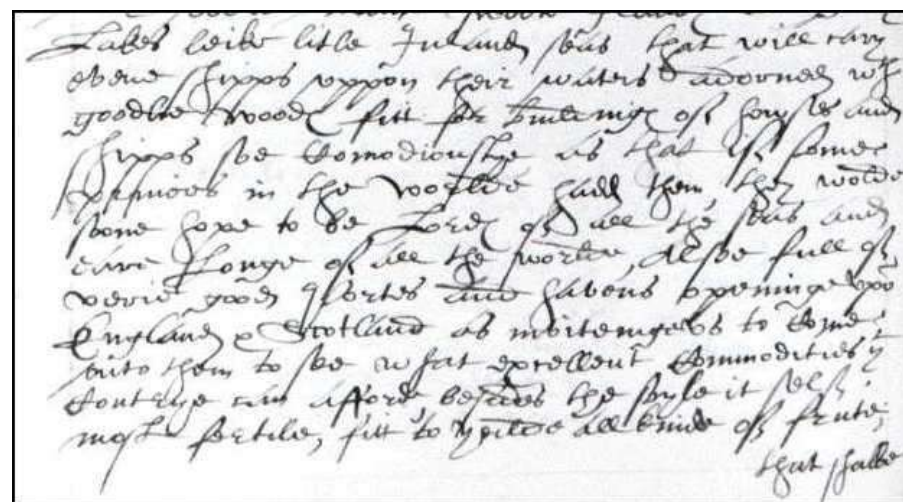 Lakes leike litle Inland seas that will cary
evene shipps vppon their waters adorned wth
goodlie woodes fitt for buildinge of howses and
shipps soe comodiouslye as that if some
princes in the worlde hadd them they wolde
soone hope to be Lordes of all the seas and
eare Longe of all the worlde, Alsoe full of
verie good Portes and havens openinge vpō
England & Scotland as invitinge vs to Come
vnto them to see what excellent Commodities yt
Contrye can afforde besides the soyle it self
most fertile, fitt to yeilde all kinde of fruite
that shalbe